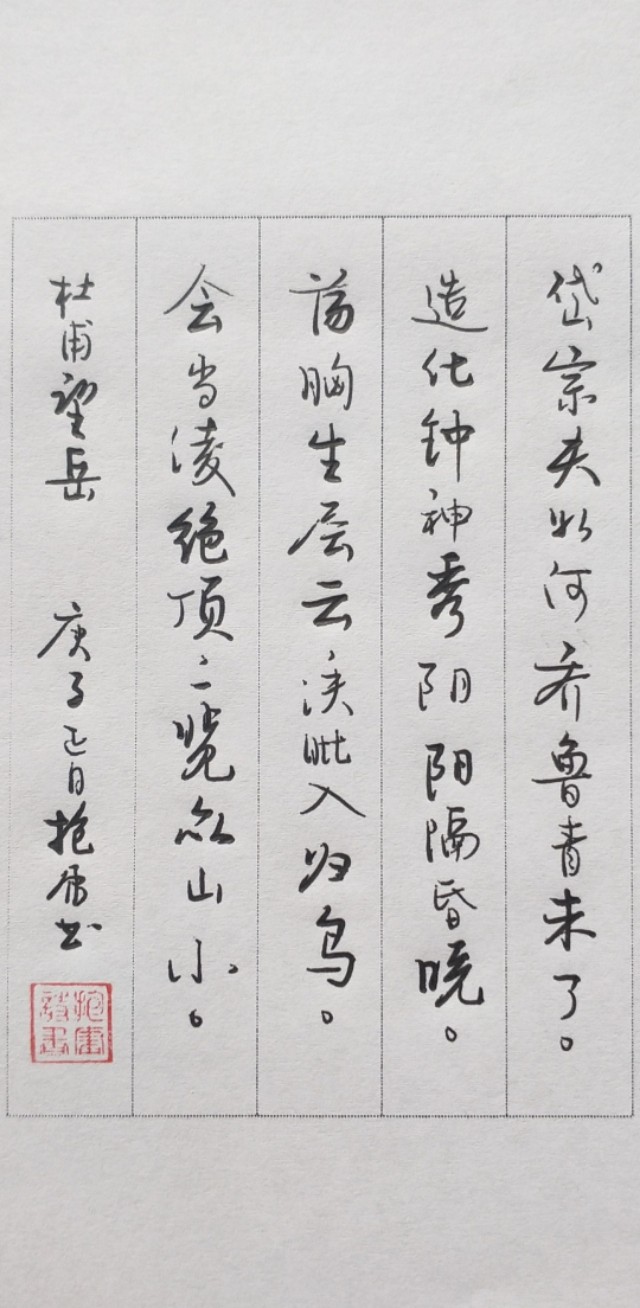 岱宗夫如何齐鲁青未了。
造化钟神秀阴阳隔昏晓。
荡胸生层云决眦入归鸟。
会当凌绝顶一览众山小。
杜甫望岳 庚子正月抱书